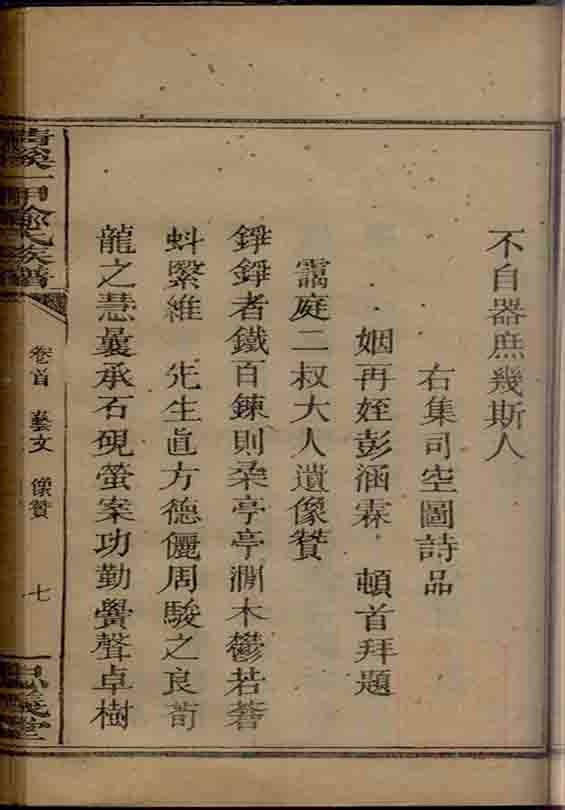 不自器庶幾斯人
右集司空圖詩品
姻再姪彭涵霖頓首拜題
靄庭二叔大人遺像贊
錚錚者鐵百鍊則柔亭亭澗木鬱若蒼
蚪繄維 先生直方德儷周駿之良荀
龍之慧曩承石硯螢案功勤黌聲卓樹
甲俞氏族譜
卷首 藝文 像贊 七
忠義堂